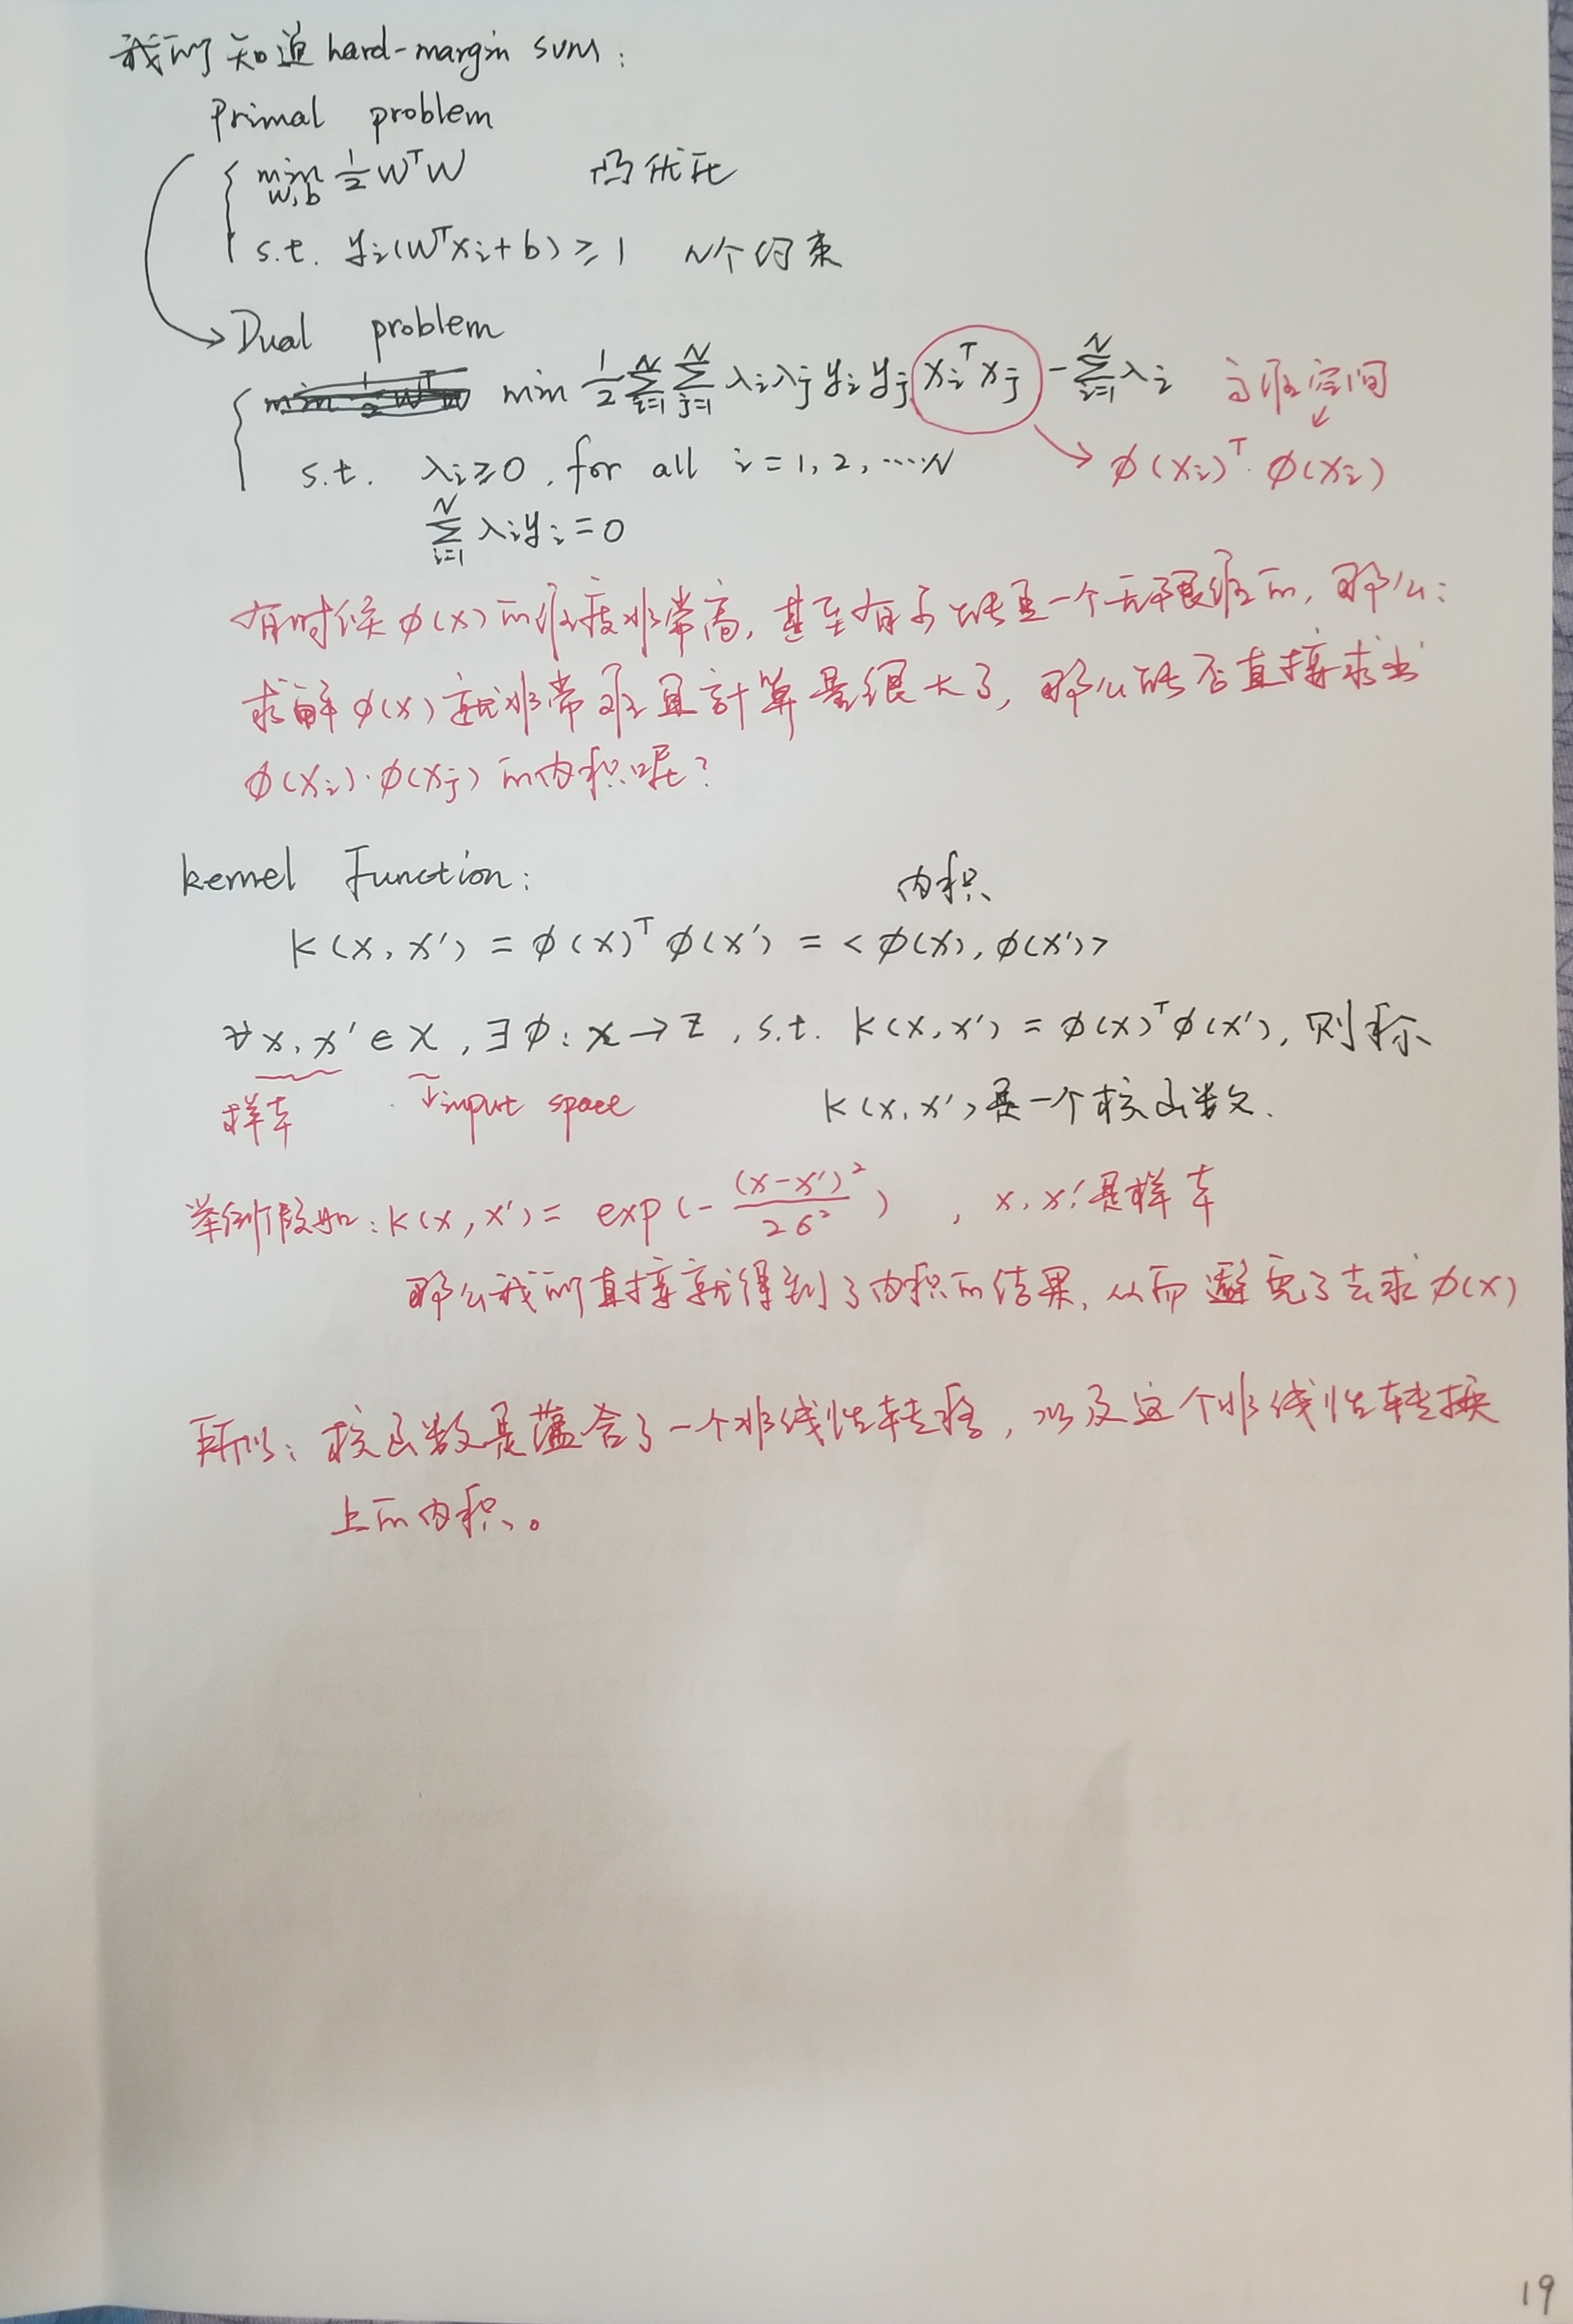 我们知道 hard-margin SVM:
Primal problem
min w,b 1/2 WᵀW 凸优化
s.t. yᵢ(Wᵀxᵢ+b)≥1 N个约束
Dual problem
min 1/2 ∑ᵢ₌₁ᴺ ∑ⱼ₌₁ᴺ λᵢλⱼyᵢyⱼ xᵢᵀxⱼ - ∑ᵢ₌₁ᴺ λᵢ 高维空间
s.t. λᵢ≥0, for all i=1,2,....N → ϕ(xᵢ)ᵀ·ϕ(xᵢ)
∑ᵢ₌₁ᴺ λᵢyᵢ=0
有时候ϕ(x)的维度非常高,甚至有可能是一个无限维的,那么:
求解ϕ(x)就非常难且计算量很大了,那么能否直接求出
ϕ(xᵢ)·ϕ(xⱼ)的内积呢?
kernel Function:
内积
K(x,x′)=ϕ(x)ᵀϕ(x′)=<ϕ(x),ϕ(x′)>
∀x,x′∈X,∃ϕ:x→Z,s.t. K(x,x′)=ϕ(x)ᵀϕ(x′),则称
样本 ↓input space K(x,x′)是一个核函数.
举例假如:K(x,x′)=exp(-(x-x′)²/2σ²) , x,x′是样本
那么我们直接就得到了内积的结果,从而避免了去求ϕ(x)
所以:核函数是蕴含了一个非线性转换,以及这个非线性转换
上的内积。
19